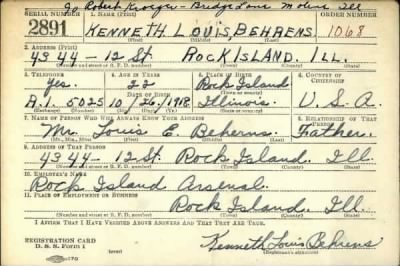 Go Robert Kroeger - Bridge Lane Moline Ill
SERIAL NUMBER 1. NAME (Print)
2891 KENNETH LOUIS, BEHRENS 1068
(First) (Middle) (Last)
2. ADDRESS (Print)
4344 - 12 St. ROCK ISLAND. ILL.
(Number and street or R. F. D. number) (Town) (County) (State)
3. TELEPHONE 4. AGE IN YEARS 5. PLACE OF BIRTH 6. COUNTRY OF CITIZENSHIP
Yes. 22 Rock Island
DATE OF BIRTH (Town or county)
R.I. 5025 10/26/1918 Illinois. U.S.A.
(Exchange) (Number) (Mo.) (Day) (Yr.) (State or country)
7. NAME OF PERSON WHO WILL ALWAYS KNOW YOUR ADDRESS 8. RELATIONSHIP OF THAT PERSON
Mr. Louis E Beherns. Father.
(Mr., Mrs., Miss) (First) (Middle) (Last)
9. ADDRESS OF THAT PERSON
4344 - 12 St. Rock Island. Ill
(Number and street or R. F. D. number) (Town) (County) (State)
10. EMPLOYER'S NAME
Rock Island Arsenal.
11. PLACE OF EMPLOYMENT OR BUSINESS
Rock Island. Ill.
(Number and street or R. F. D. number) (Town) (County) (State)
I AFFIRM THAT I HAVE VERIFIED ABOVE ANSWERS AND THAT THEY ARE TRUE.
REGISTRATION CARD
D. S. S. FORM 1
Kenneth Louis Behrens
(Registrant's signature)